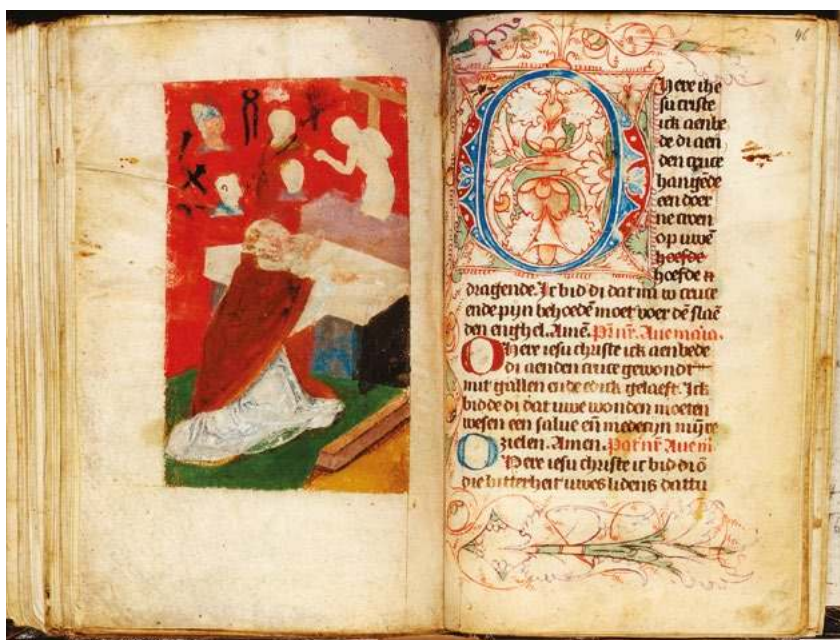 46
O Here ihe
su criste
ick aenbe
de di aen
den cruce
hangēde
een doer
ne croen
op uwē
hoefde
hoefde
dragende. Ic bid di dat mi cruce
ende pijn behoedē moet voer dē slaē
den enghel. Amē. Pr̄ nr̄. Aue maīa.
O Here iesu christe ick aenbede
di aenden cruce gewondt
mit gallen ende edick gelaeft. Ick
bidde di dat uwe wonden moeten
wesen een salue eñ medecijn mijre
zielen. Amen. Pat̄ nr̄ Aue m̄
O Here iesu christe ic bid di ō
die bitterheit uwes lidens dattu